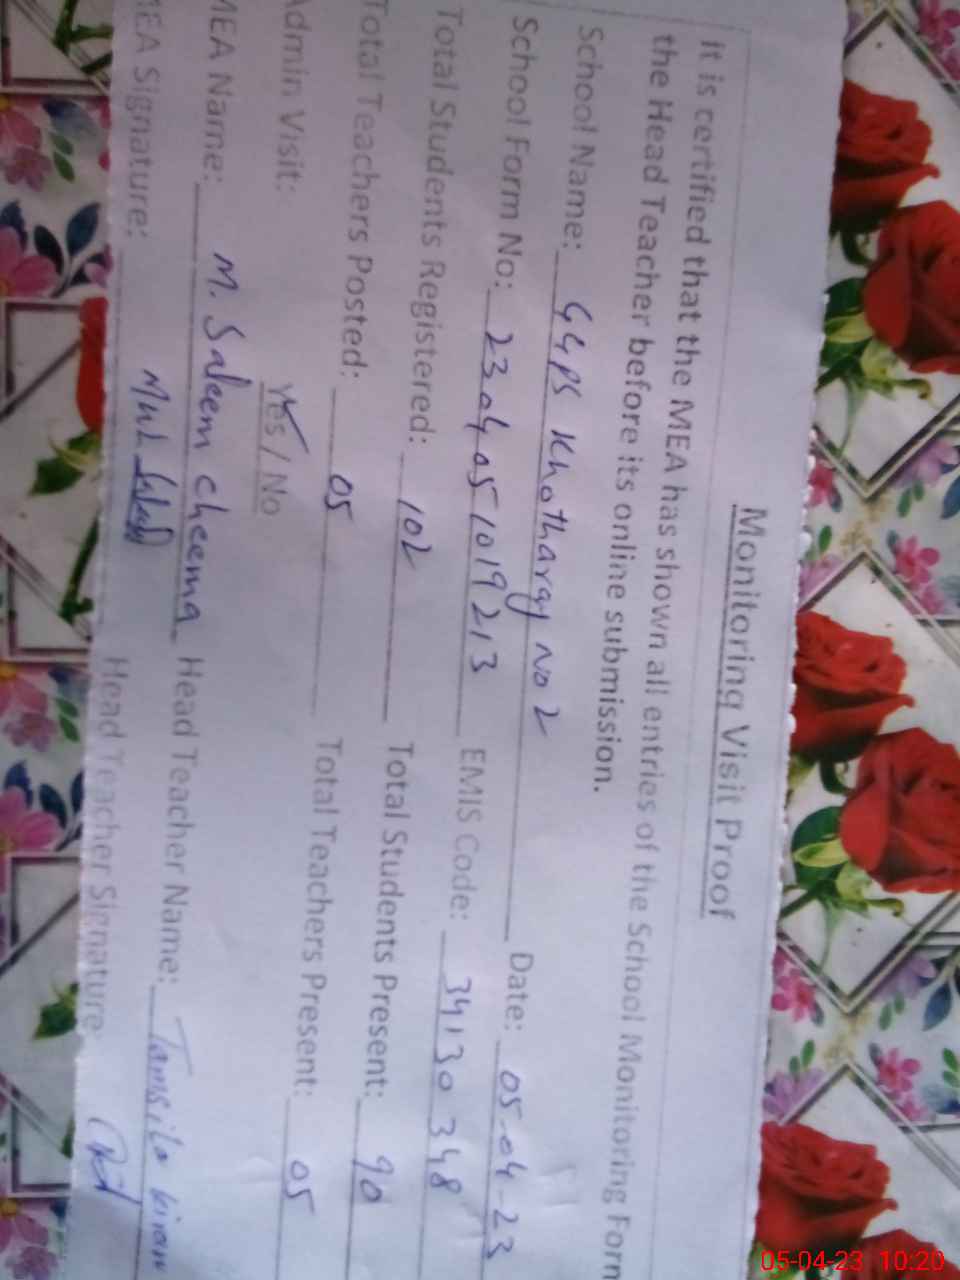 Monitoring Visit Proof
It is certified that the MEA has shown all entries of the School Monitoring Form
the Head Teacher before its online submission.
School Name: GGPS Khothargy No 2 Date: 05-04-23
School Form No: 2304051019213 EMIS Code: 34130348
Total Students Registered: 102 Total Students Present: 90
Total Teachers Posted: 05 Total Teachers Present: 05
Admin Visit: Yes / No
MEA Name: M. Saleem cheema Head Teacher Name: Tamsila kiran
MEA Signature: Head Teacher Signature:
05-04-23 10:20